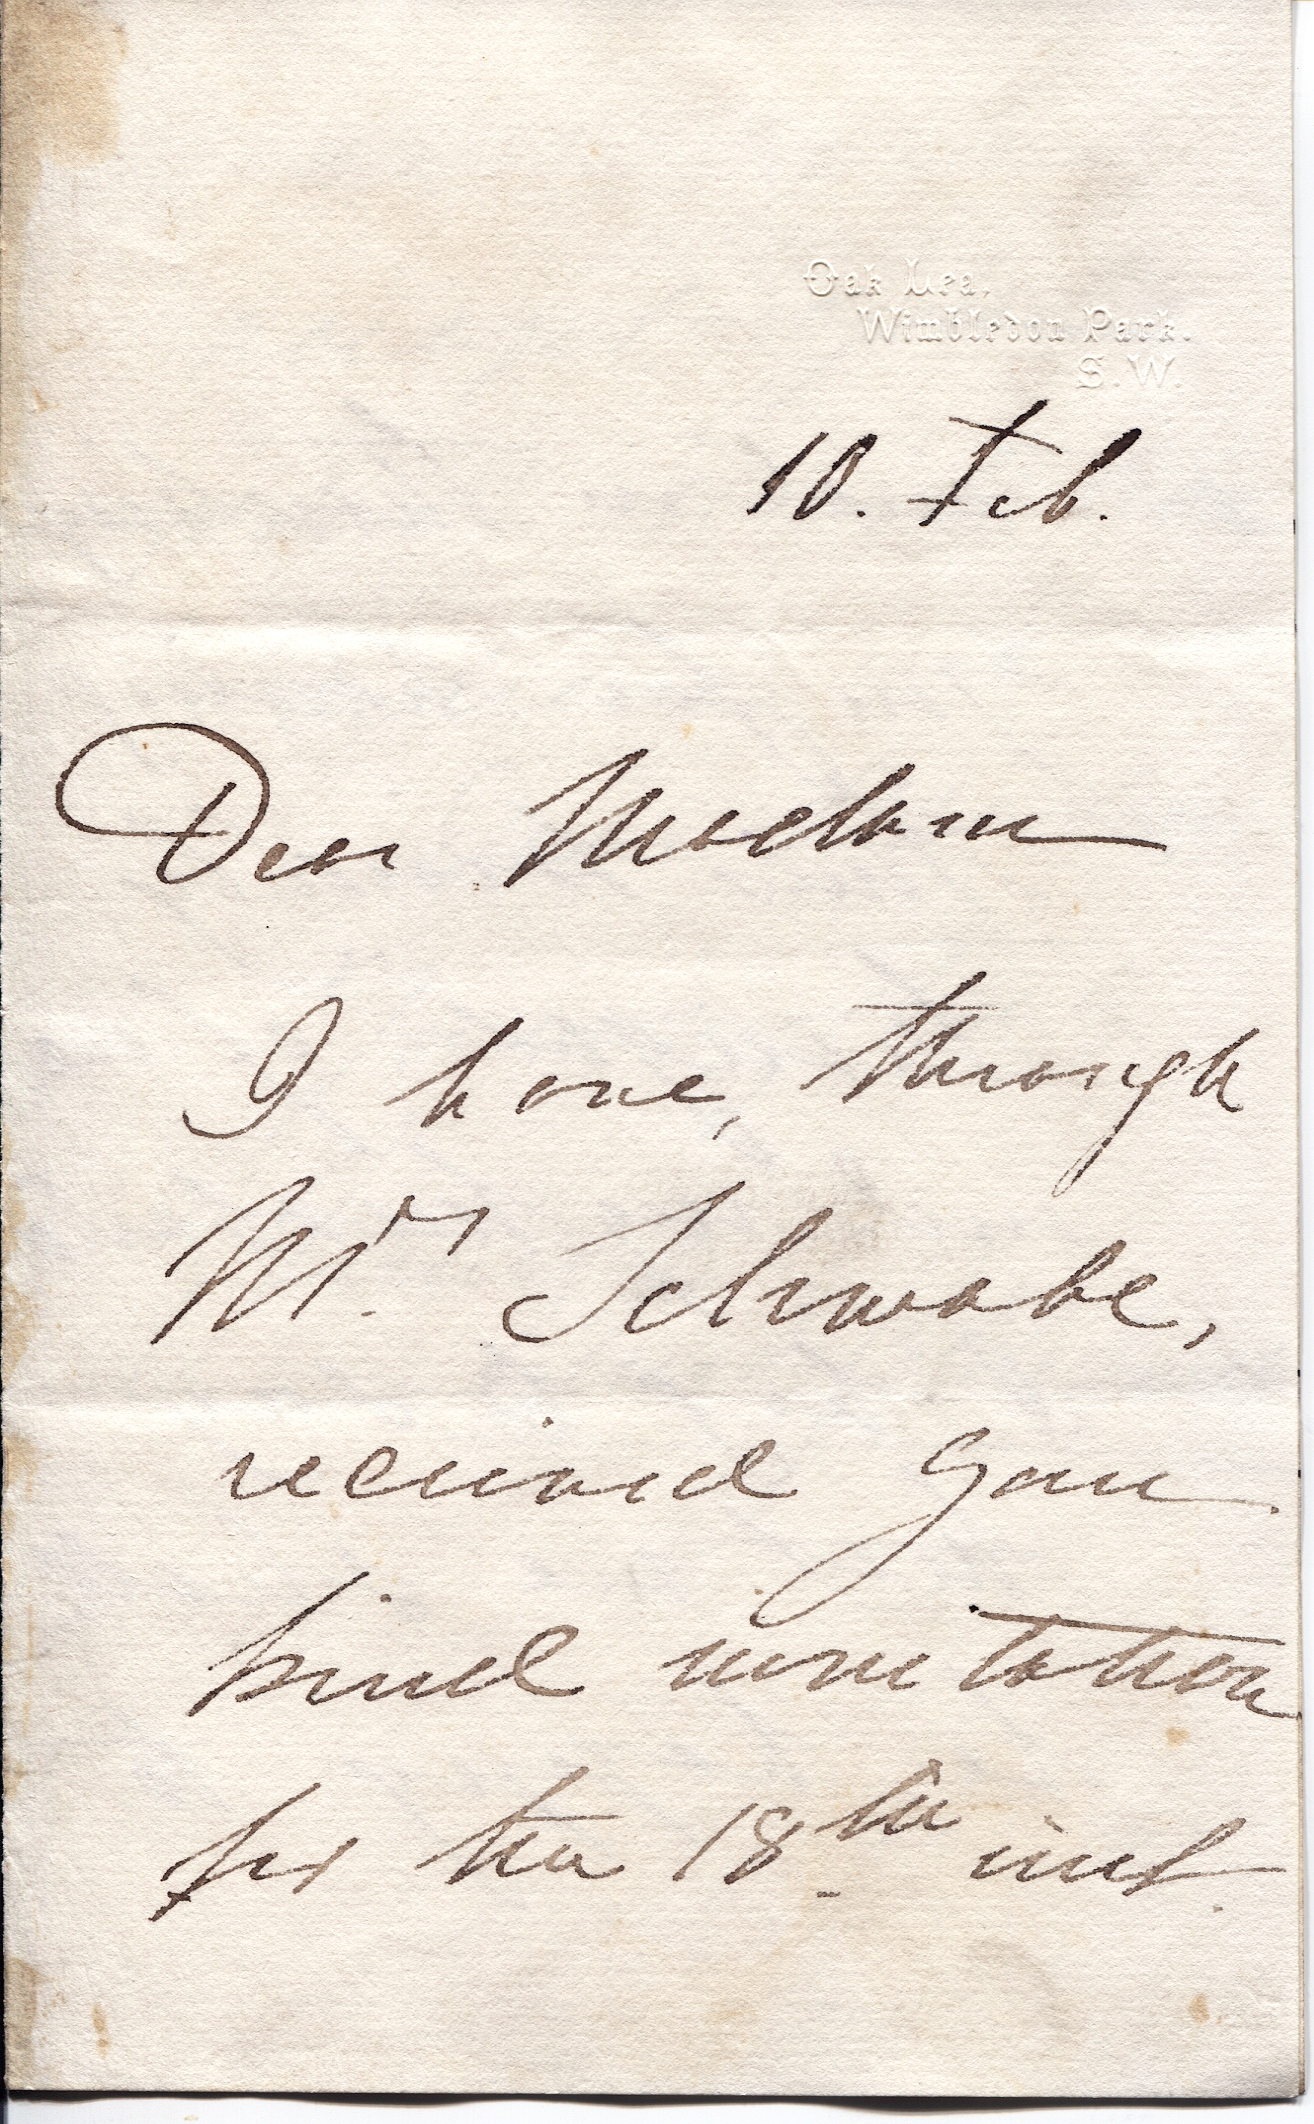 Oak Lea,
Wimbledon Park.
S.W.
10. Feb.
Dear Madam
I have, through
Mr. Schwabe,
received your
kind invitation
for the 18th inst.